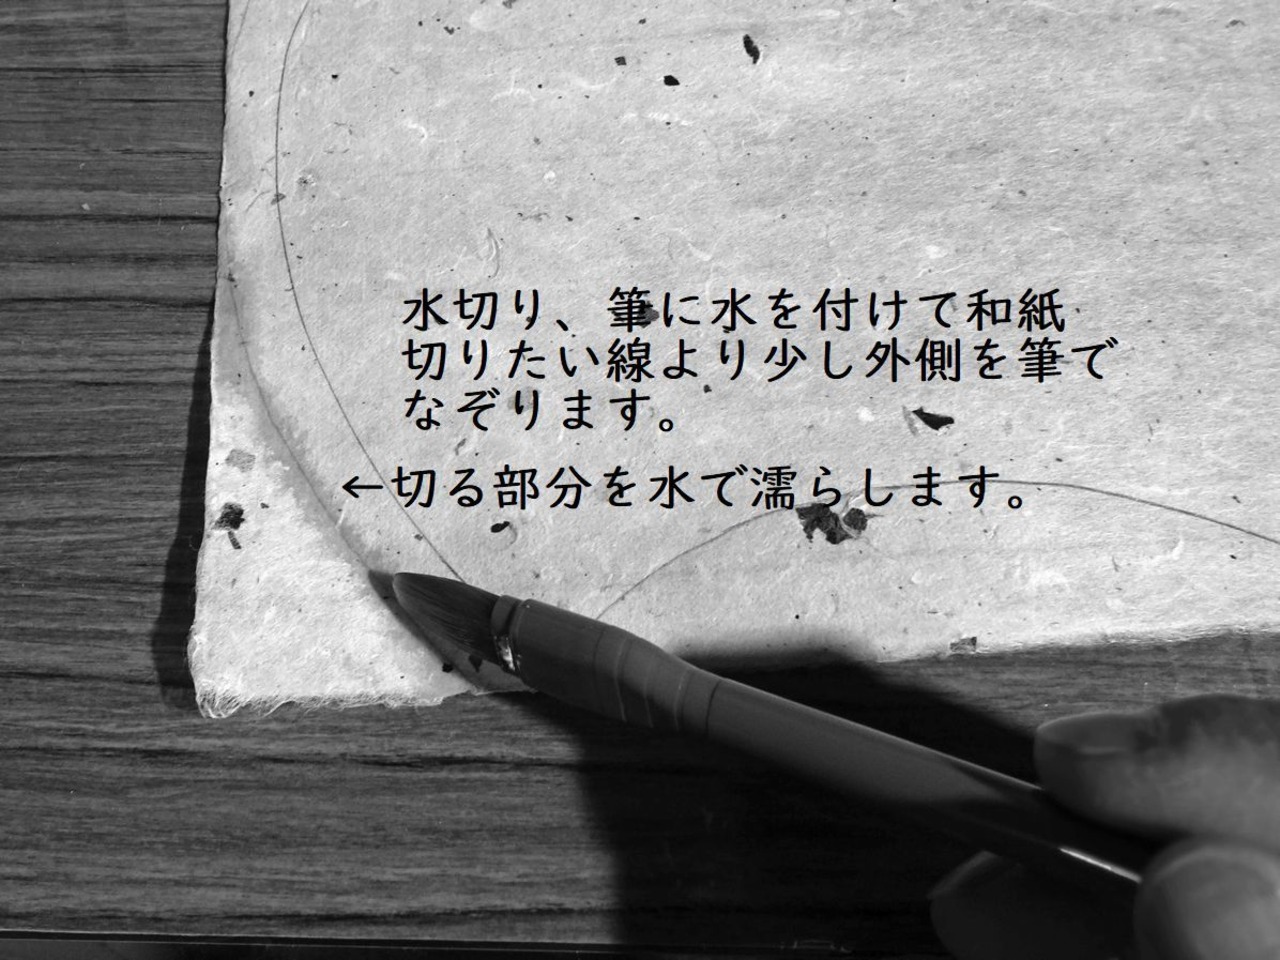 水切り、筆に水を付けて和紙
切りたい線より少し外側を筆で
なぞります。
←切る部分を水で濡らします。